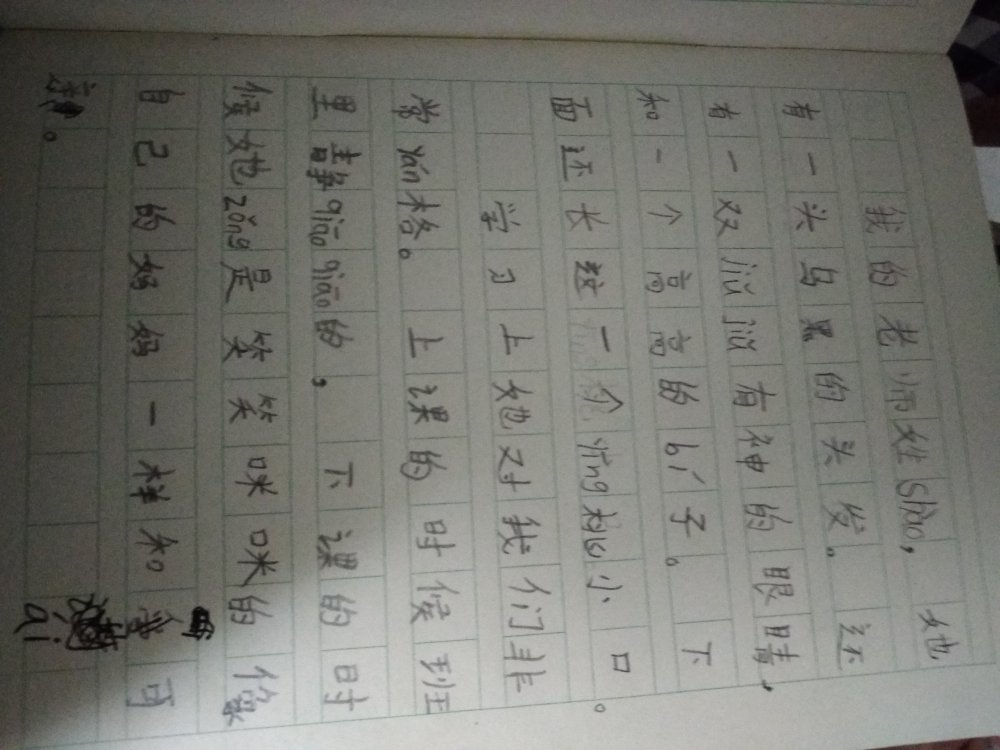 我的老师姓Shào，她
有一头乌黑的头发。还
有一双jiǔjiǔ有神的眼睛，
和一个高高的bí子。下
面还长着一个yīng桃小口。
学习上她对我们非
常yán格。上课的时候班
里静qiāoqiāo的，下课的时
候她zǒng是笑笑咪咪的像
自己的妈妈一样和可
ai